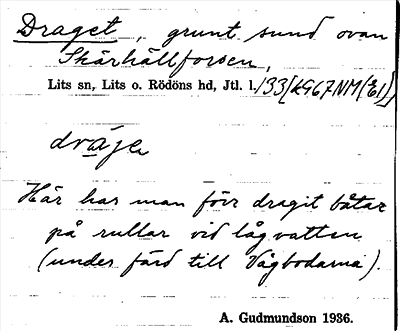 Draget, grunt sund ovan
Skärhällforsen,
Lits sn, Lits o. Rödöns hd, Jtl. l. 133[KG67NM(El)]
dråje
Här har man förr dragit båtar
på rullar vid lågvatten
(under färd till Vågbodarna).
A. Gudmundson 1936.